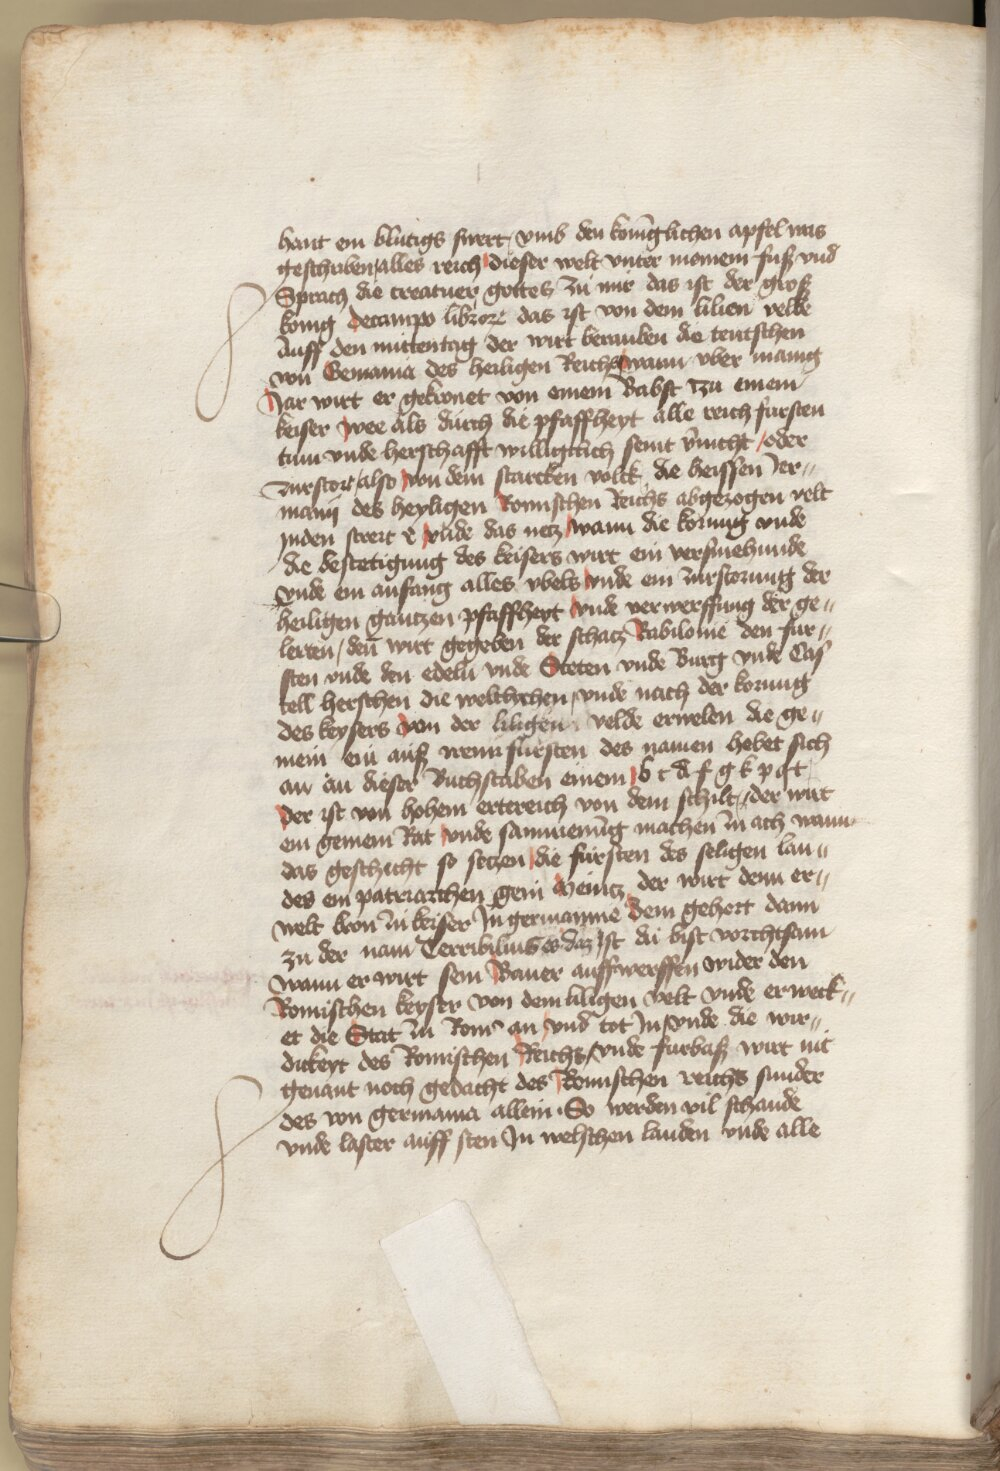 hant ein blutigs swert / vmb den koniglichen apfel was
geschriben / alles reich dieser welt vnter meinem fusz vnd
Sprach die creatuer gottes zu mir das ist der grosz
konig Decampo libror das ist von dem lilien velde
Auff den mittentag der wirt berauben die teutschen
von Gemania des heiligen Reichs wann vber manig
Jar wirt er gekronet von einem Babst zu einem
keiser wee als durch die pfaffheyt alle reich fursten
tum vnde herschafft williglich seint vnicht / oder
zurstort / also von dem starcken volck die heissen Jer"
manij des heyligen Romischen Reichs abgezogen velt
Jnden streit vnde das netz wann die kornung vnde
die bestetigung des keisers wirt ein versmehunde
vnde ein anfang alles vbels vnde ein zurstorung der
heiligen gantzen pfaffheyt vnde verwerffung der ge"
lerten / den wirt gegeben der schatz Babilonie den fur"
sten vnde den edeln vnde Steten vnde Burg vnde Cas
tell herschen die weltlichen / vnde nach der kornug
des keysers von der liligen velde erwelen die ge"
mein ein ausz irem fursten des namen hebet sich
an an dieser Buchstaben einem b c d f g k p q t
Der ist von hohem ertereich von dem schilt / der wirt
ein gemein Rat vnde sammenung machen zu ach wann
das geschicht so setzen die fursten des seligen lan"
des ein patriarchen gein Meintz der wirt denn er"
welt kron zu keiser Jn germannie Dem gehort dann
zu der nam Terribilius es daz ist du bist vorchtsam
wann er wirt sein Baner auffwerffen wider den
Romischen keyser von dem liligen velt vnde erweck"
et die Stat zu Rom an vnd tot Jn / vnde die wir"
dickeyt des Romischen Reichs / vnde furbasz wirt nit
genant noch gedacht des Romischen reichs sunder
des von germania allein So werden vil schande
vnde laster auff sten Jn welschen landen vnde alle